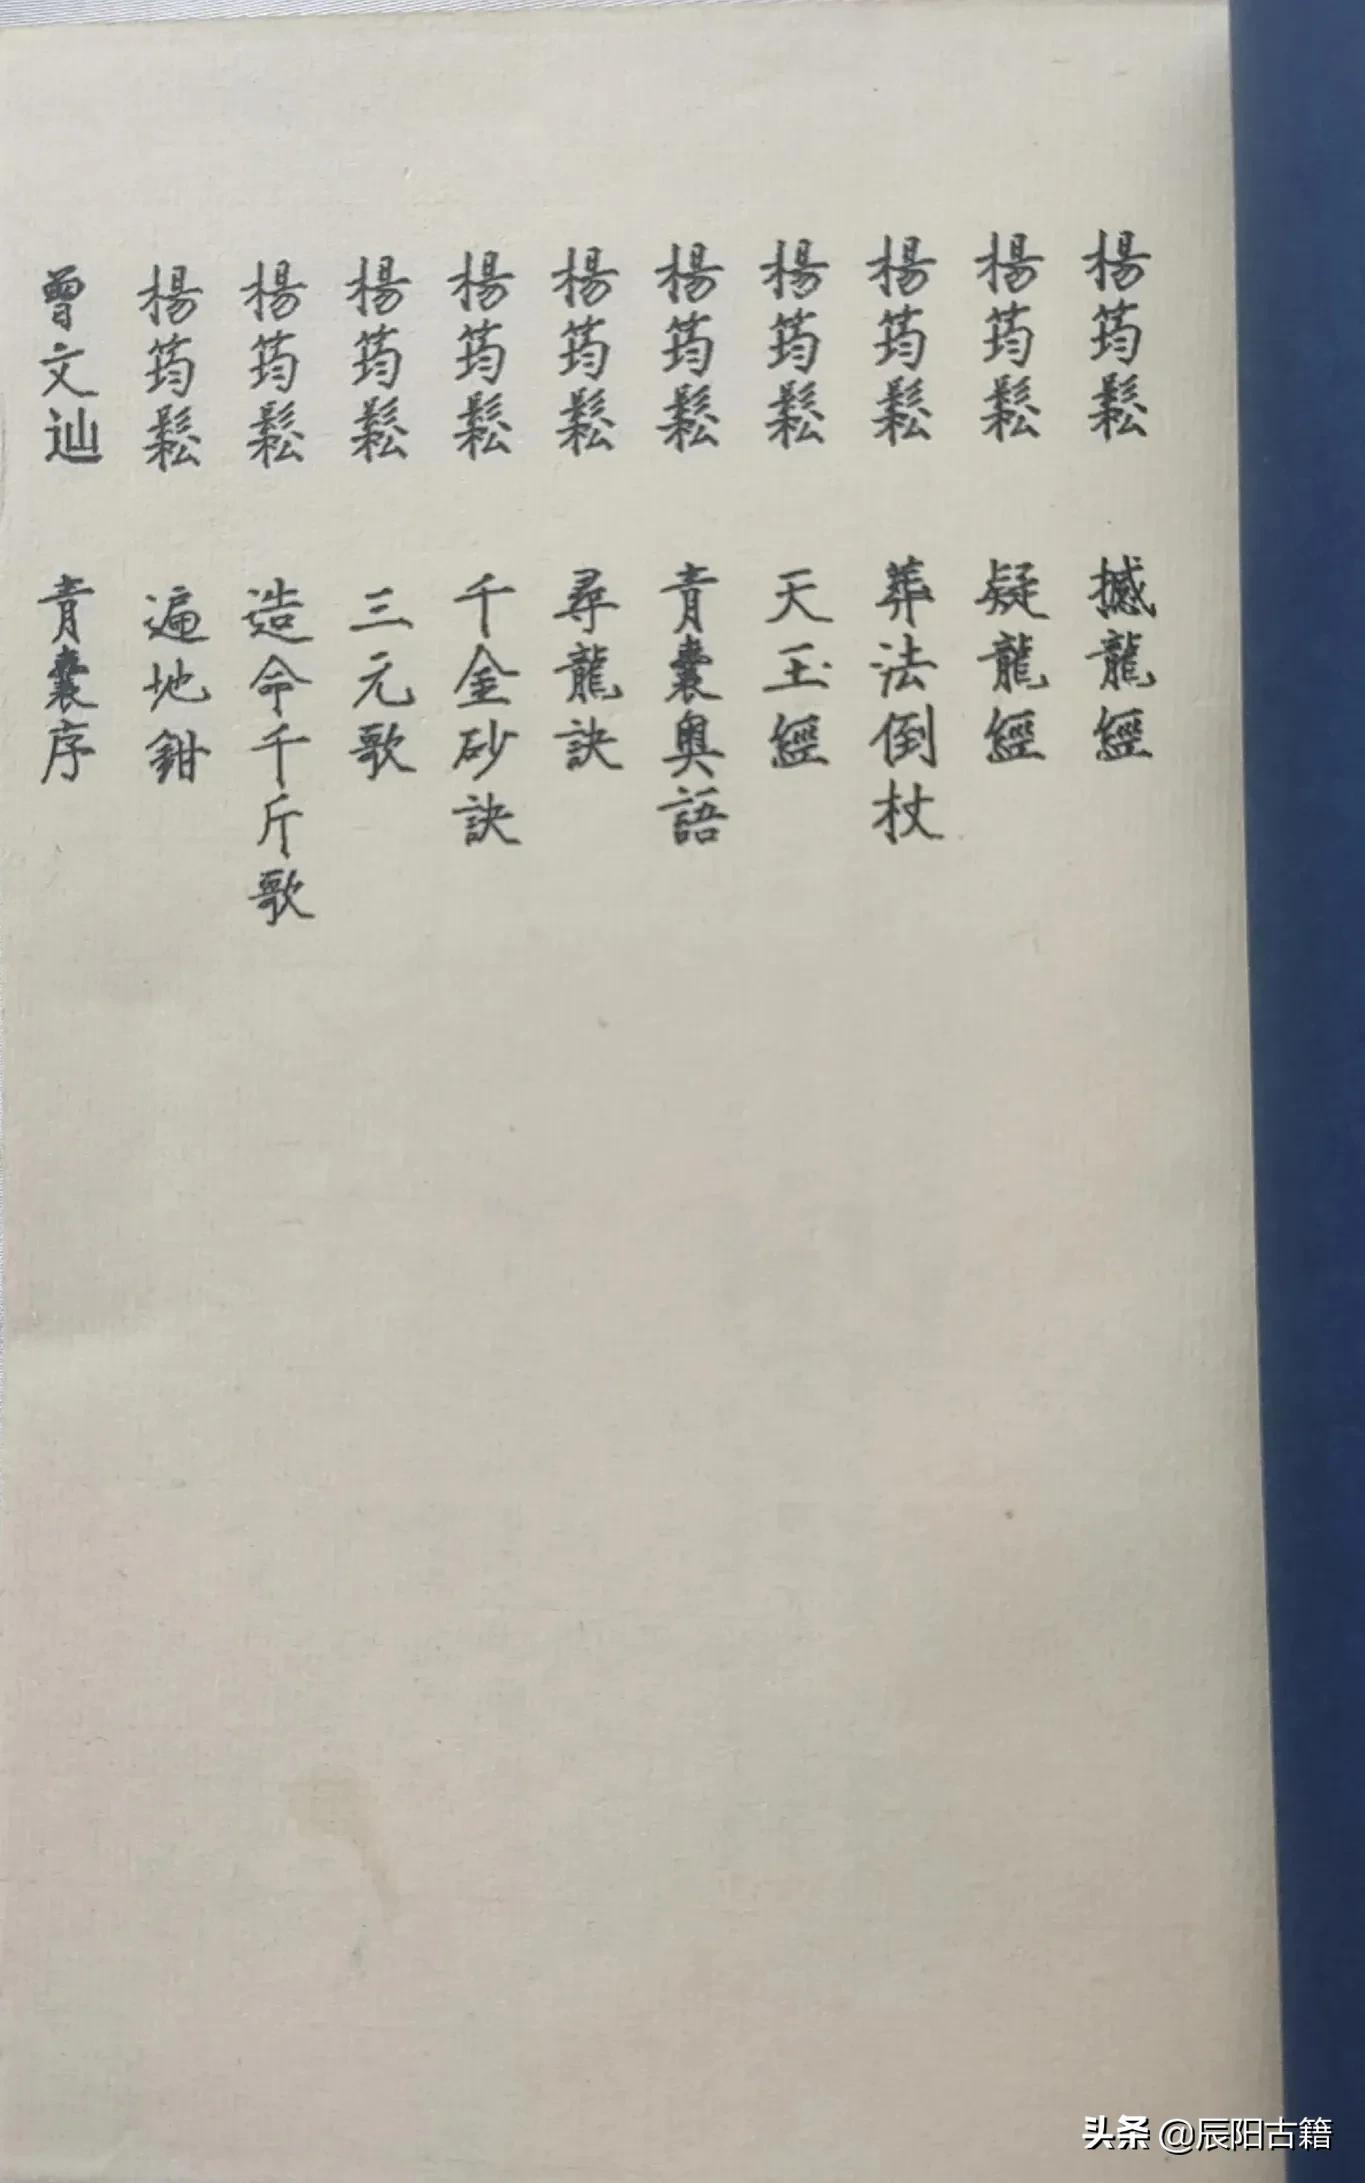 楊筠鬆 撼龍經
楊筠鬆 疑龍經
楊筠鬆 葬法倒杖
楊筠鬆 天玉經
楊筠鬆 青囊奥語
楊筠鬆 尋龍訣
楊筠鬆 千金砂訣
楊筠鬆 三元歌
楊筠鬆 造命千斤歌
楊筠鬆 遍地鉗
曾文辿 青囊序
头条 @辰阳古籍